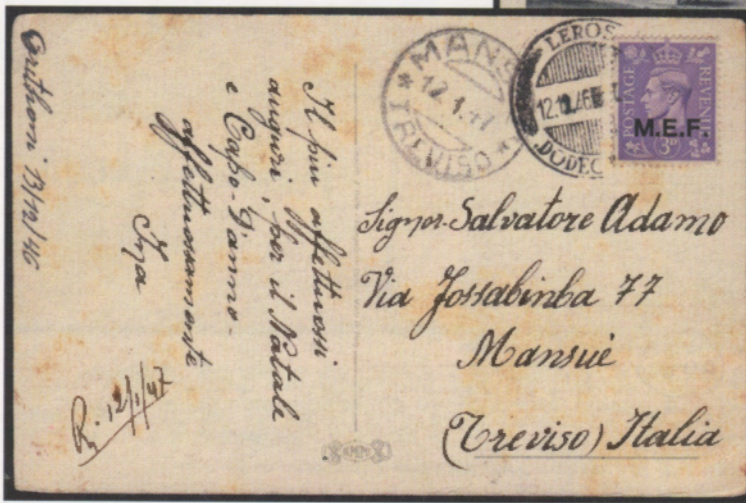 13/12/46
Il più affettuosi
auguri, per il Natale
e Capo-D'anno-
affettuosamente
R. 12/1/47
MANS
12.1.47
* TREVISO *
LEROS
DODEC
POSTAGE
REVENUE
M.E.F.
3D
Signor Salvatore Adamo
Via Fossabinba 77
Mansuè
(Treviso) Italia